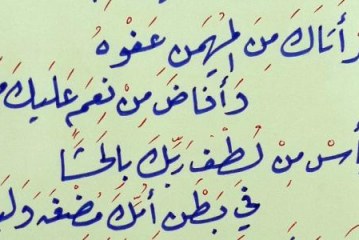 وَأَتَاكَ مِنَ المُهَيْمِنِ عَفْوهُ
وَأَفَاضَ مِنْ نِعَمٍ عَلَيكَ
مِنْ لُطْفِ رَبِّكَ بِالحَشَا
فِي بَطْنِ أُمِّكَ مُضْغَة وَلَي